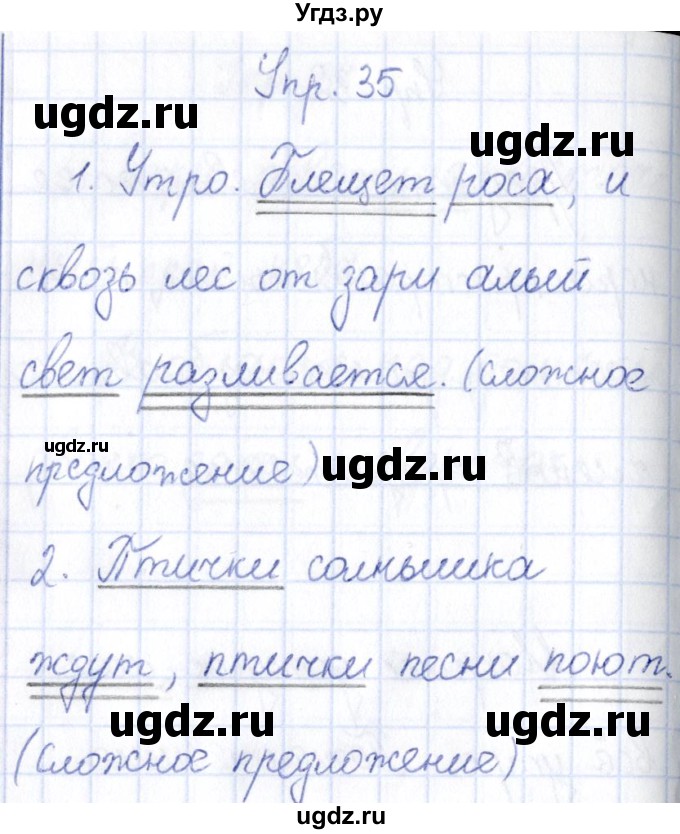 Угдз.ру
Упр. 35
ugdz.ru
ugdz.ru
1. Утро. Блещет роса, и
сквозь лес от зари алый
свет разливается. (сложное
ugdz.ru
предложение) ugdz.ru
2. Птички солнышка
ждут, птички песни поют.
ugdz.ru
ugdz.ru
(сложное предложение)
ugdz.ru